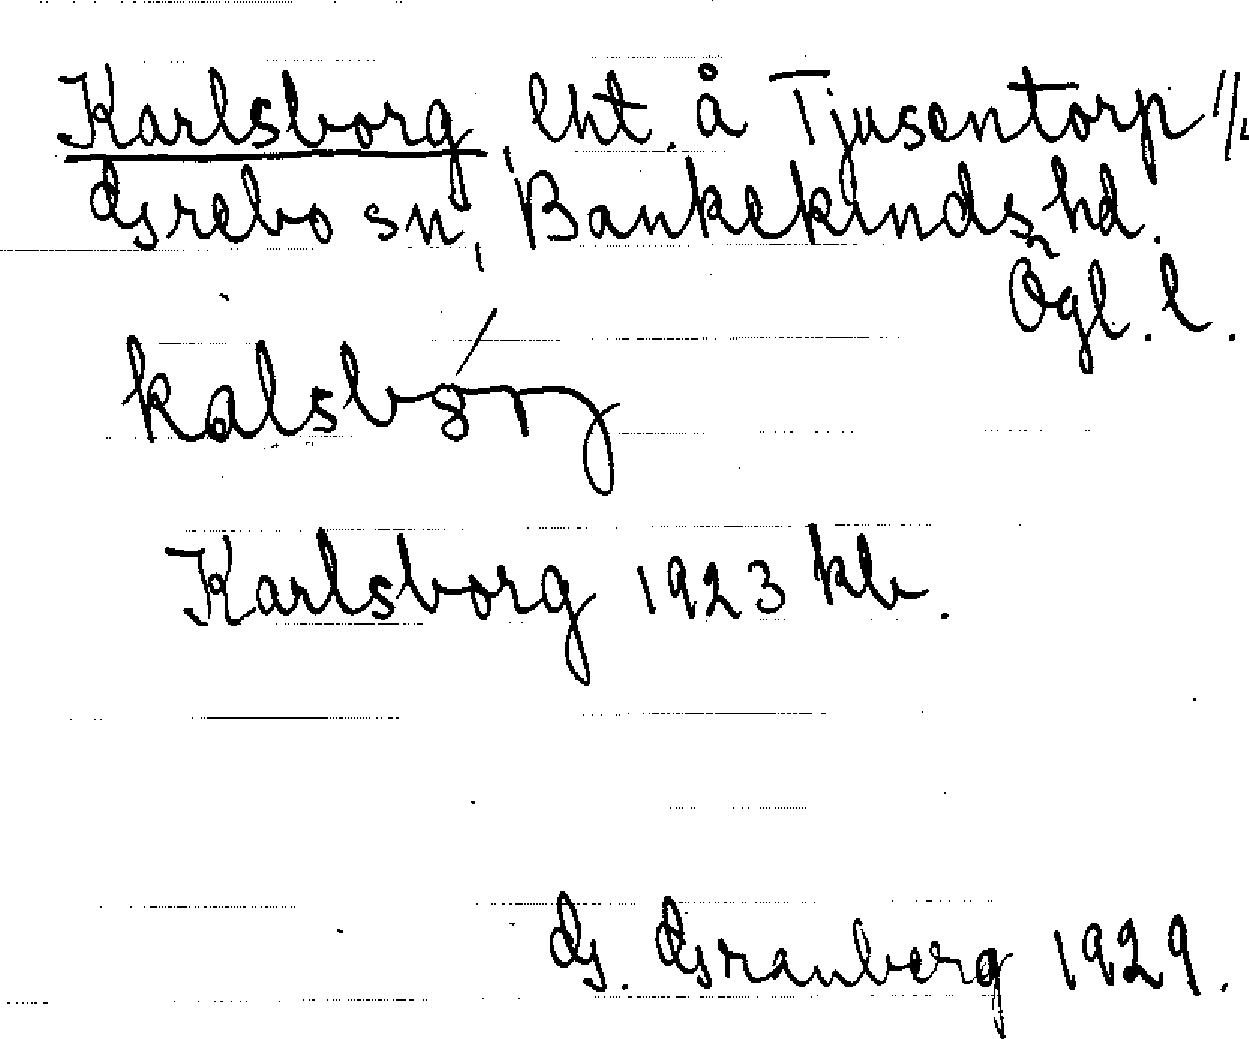 Karlsborg, lht. å Tjusentorp //,
Grebo sn, Bankekinds hd.
Ögl. l.
kalsborg
Karlsborg 1923 kb.
G. Granberg 1929.